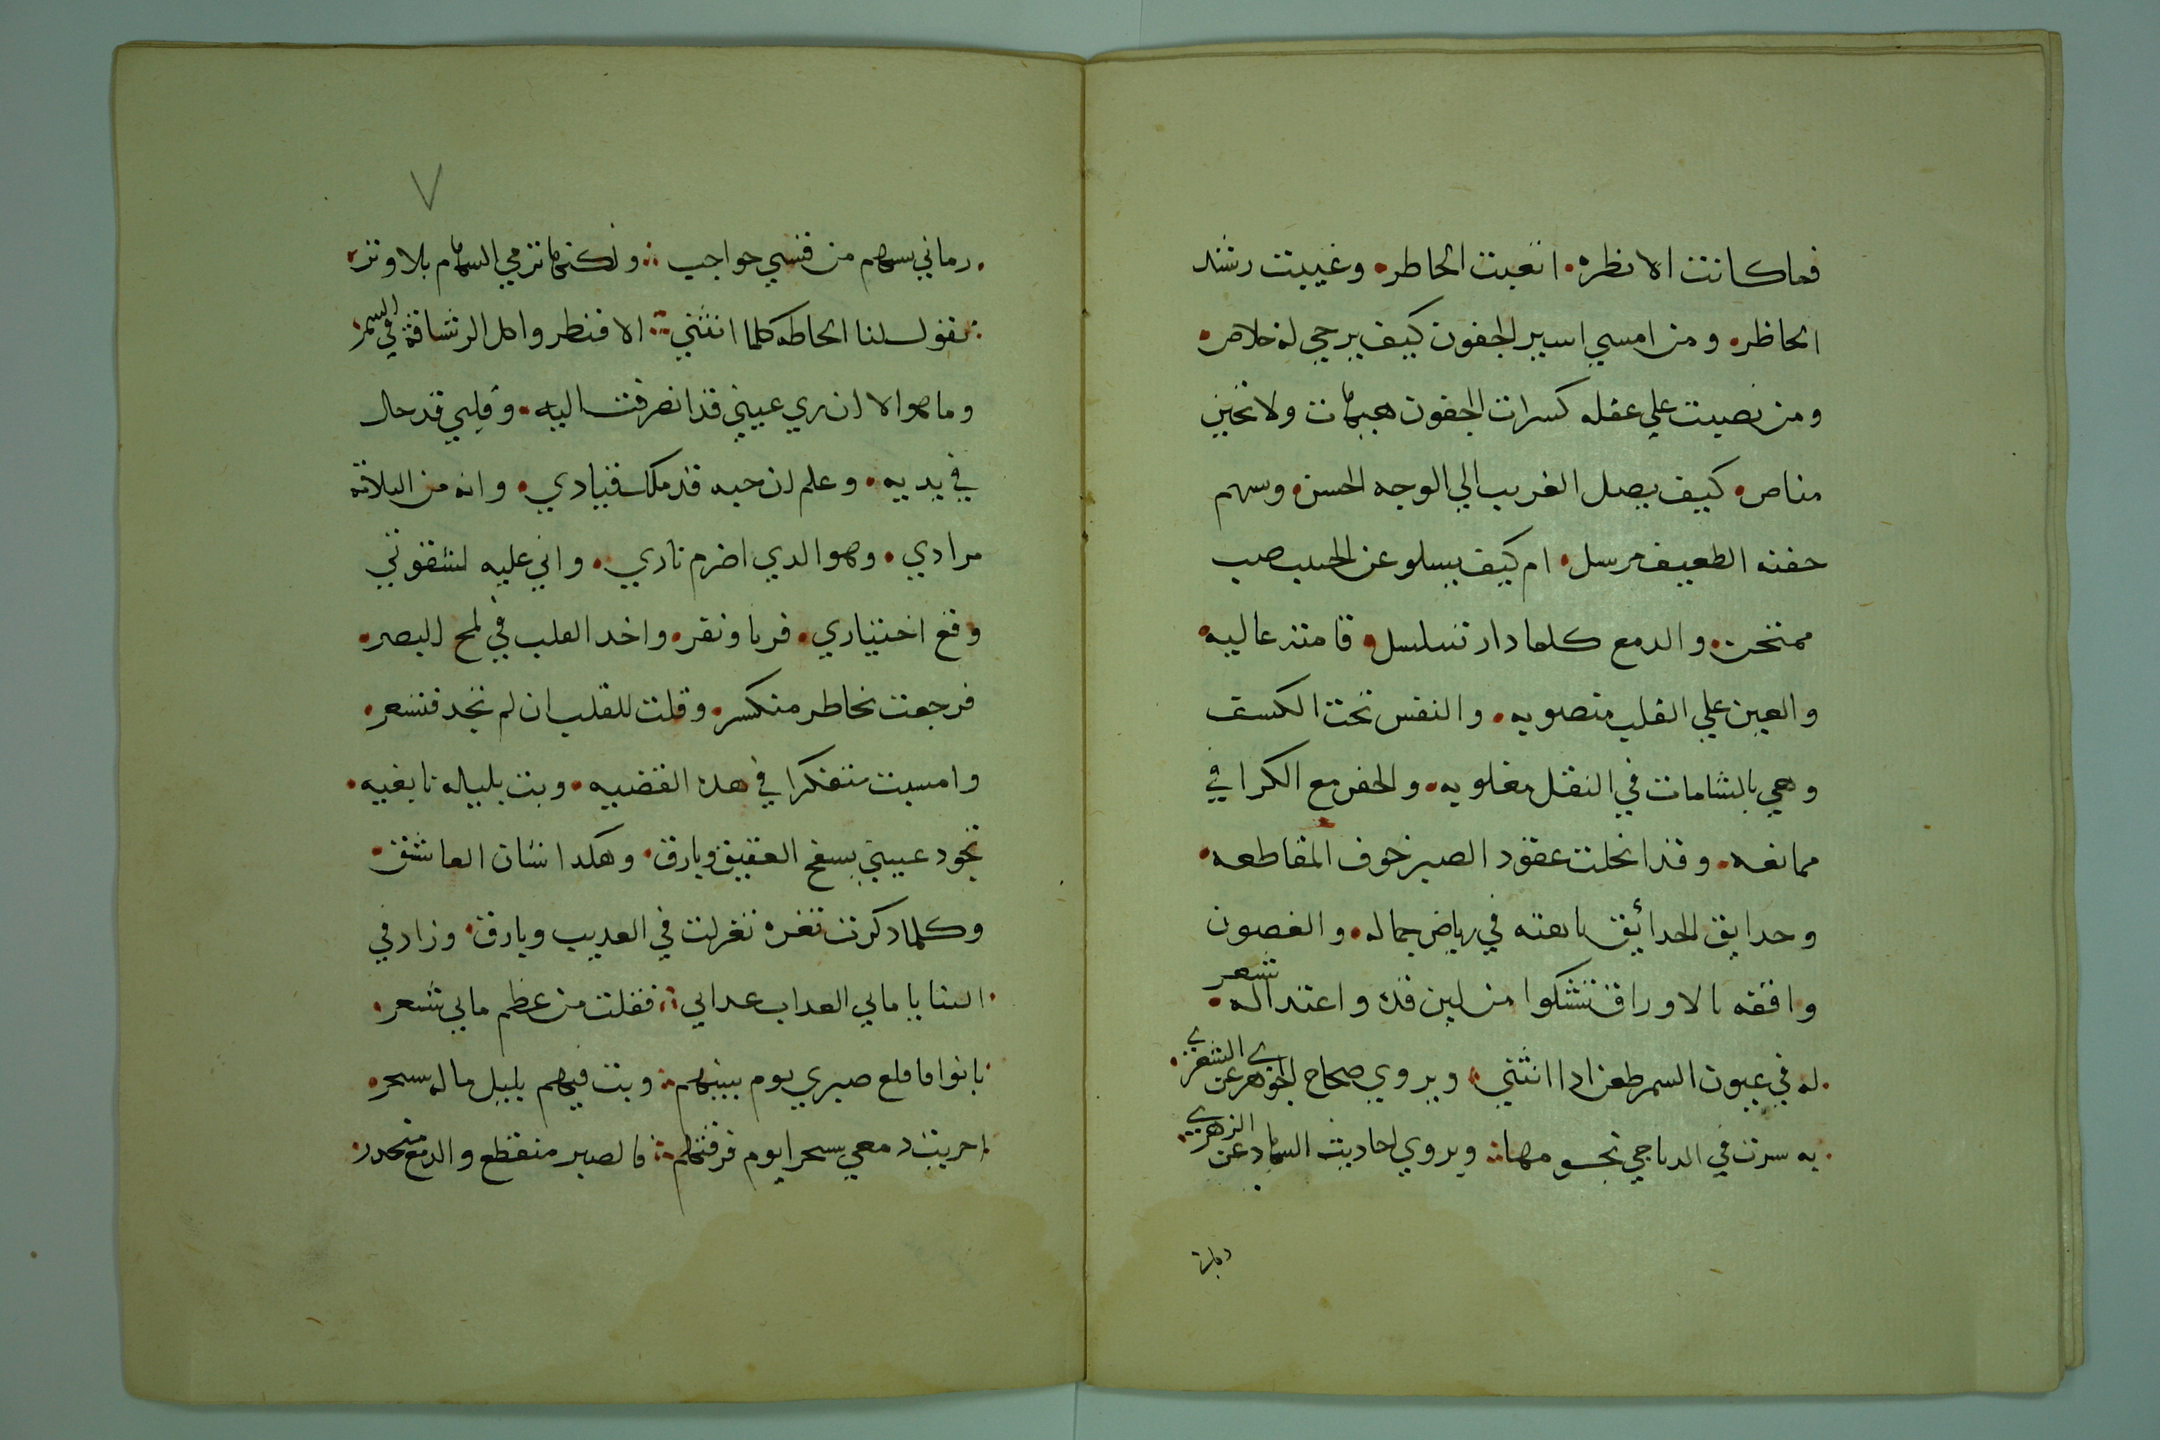 فما كانت الا نظره اتعبت الخاطر وغيبت رشد
الحاظر ومن امسي اسير الجفون كيف يرجي له خلاص
ومن نصبت علي عقله كسرات الجفون هيهات ولا تحين
مناص كيف يصل الغريب الي الوجه الحسن وسهم
جفنه الضعيف مرسل ام كيف يسلو عن الحبيب صب
ممتحن والدمع كلما دار تسلسل قامته عاليه
والعين علي القلب منصوبه والنفس تحت الكسف
وهي بالشامات في النقل مغلوبه والجفن مع الكرا في
ممانعه وقد انحلت عقود الصبر خوف المقاطعه
وحدايق الحدائق يانعته في رياض جماله والغصون
واقفه بالاوراق تشكوا من لين قده واعتداله شعر
له في عيون السمر طعن ادا انثني ويروي صحاح الجوهري عن الشعري
به سرت في الدياجي نحو مها ويروي احاديث السهاد عن الزهري
رماني بسهم من قسي حواجب ولكنها ترمي السهام بلا وتر
تقول لنا الحاظه كلما انثني الا فنظروا كل الرشاقة في السمر
وما هو الا ان ري عيني قد انصرفت اليه وقلبي قد حال
في يديه وعلم ان حبه قد ملك قيادي وانه من البلاته
مرادي وهو الدي اضرم ناري واني عليه لشقوتي
وقع اختياري فرنا ونفر واخد القلب في لمح البصر
فرجعت بخاطر منكسر وقلت للقلب ان لم تجد فتسعر
وامسيت متفكرا في هده القضيه وبت بليله نابغيه
تجود عيني بسفح العقيق وبارق وهكدا شان العاشق
وكلما دكرت ثغره تغزلت في العديب وبارق وزاد في
الثنايا مابي العداب عدابي فقلت من عظم مابي شعر
بانوا فا قلع صبري يوم بينهم وبت فيهم بليل ما له سحر
اجريت دمعي بسحر ايوم فرقتهم فالصبر منقطع والدمع منحدر